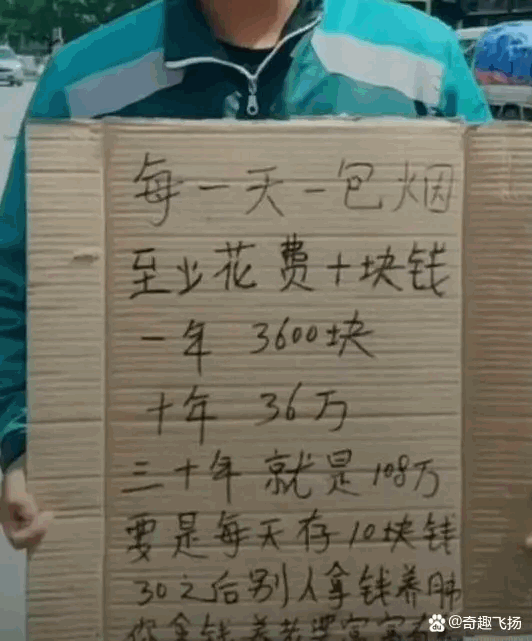 每一天一包烟
至少花费十块钱
一年 3600块
十年 36万
三十年 就是 108万
要是每天存10块钱
30之后别人拿钱养肺
你拿钱养老
奇趣飞扬